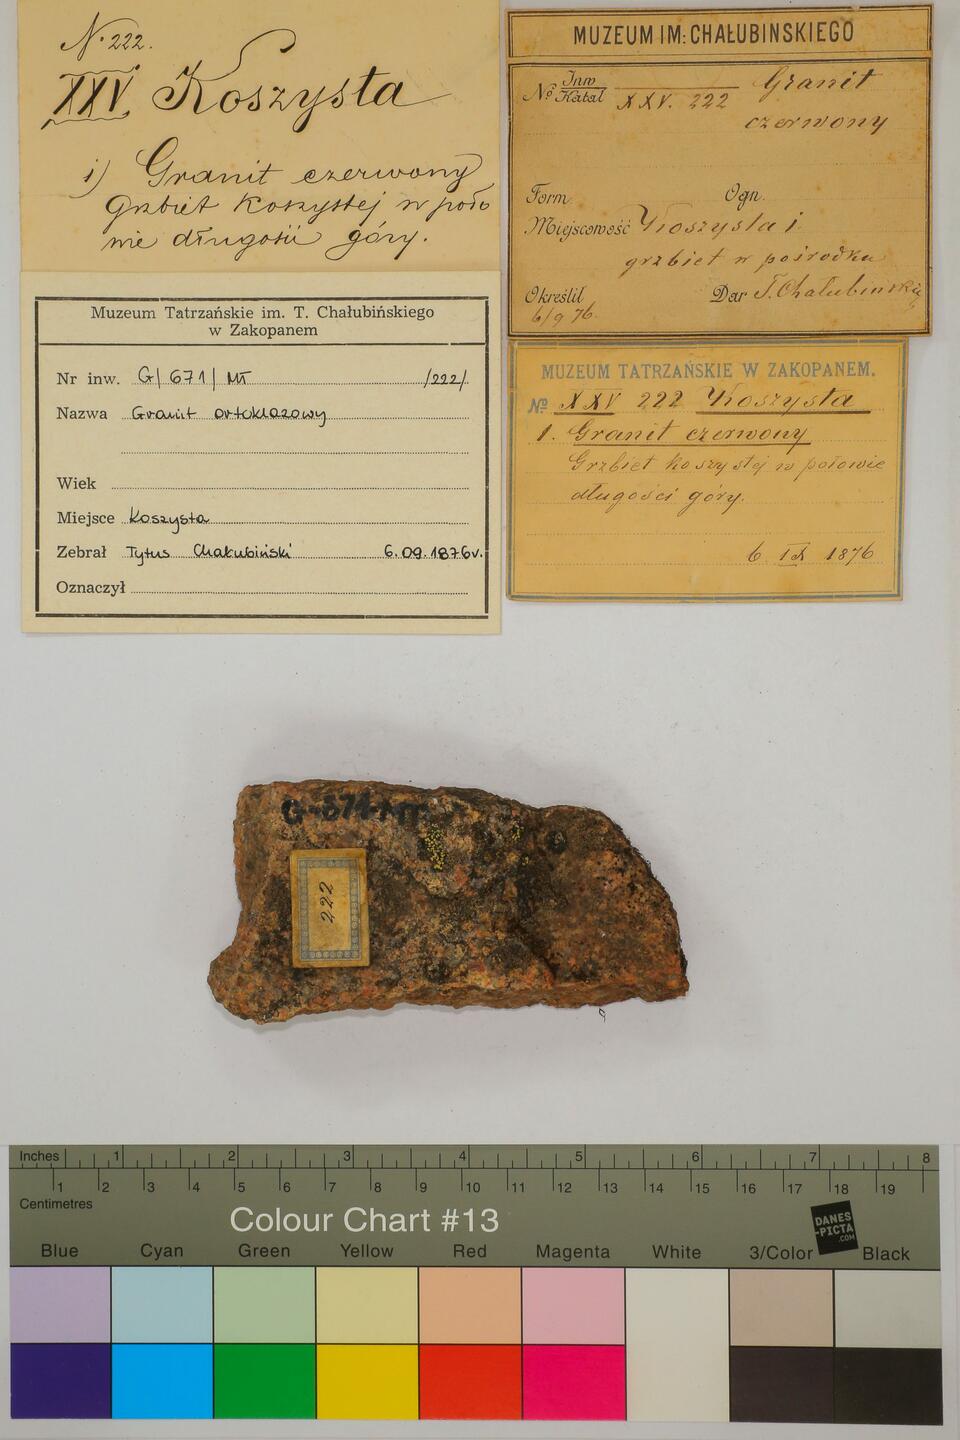 N. 222.
XXV Koszysta
i) Granit czerwony
Grzbiet Koszystej w poło
wie długości góry.
MUZEUM IM: CHAŁUBINSKIEGO
No Inw
Katal XXV. 222 Granit
czerwony
Form. Ogn.
Miejscowość Koszysta i.
grzbiet w pośrodku
Określił Dar T. Chałubińskieg
6/9 76.
Muzeum Tatrzańskie im. T. Chałubińskiego
w Zakopanem
Nr inw. G/671/MT /222/
Nazwa Granit ortoklazowy
Wiek
Miejsce Koszysta
Zebrał Tytus Chałubiński 6.09.1876r.
Oznaczył
MUZEUM TATRZAŃSKIE W ZAKOPANEM.
No XXV 222 Koszysta
1. Granit czerwony
Grzbiet Koszystej w połowie
długości góry.
6 IX 1876
G-671-MT
222
Inches 1 2 3 4 5 6 7 8
1 2 3 4 5 6 7 8 9 10 11 12 13 14 15 16 17 18 19
Centimetres
Colour Chart #13
DANES
-PICTA
.COM
Blue Cyan Green Yellow Red Magenta White 3/Color Black